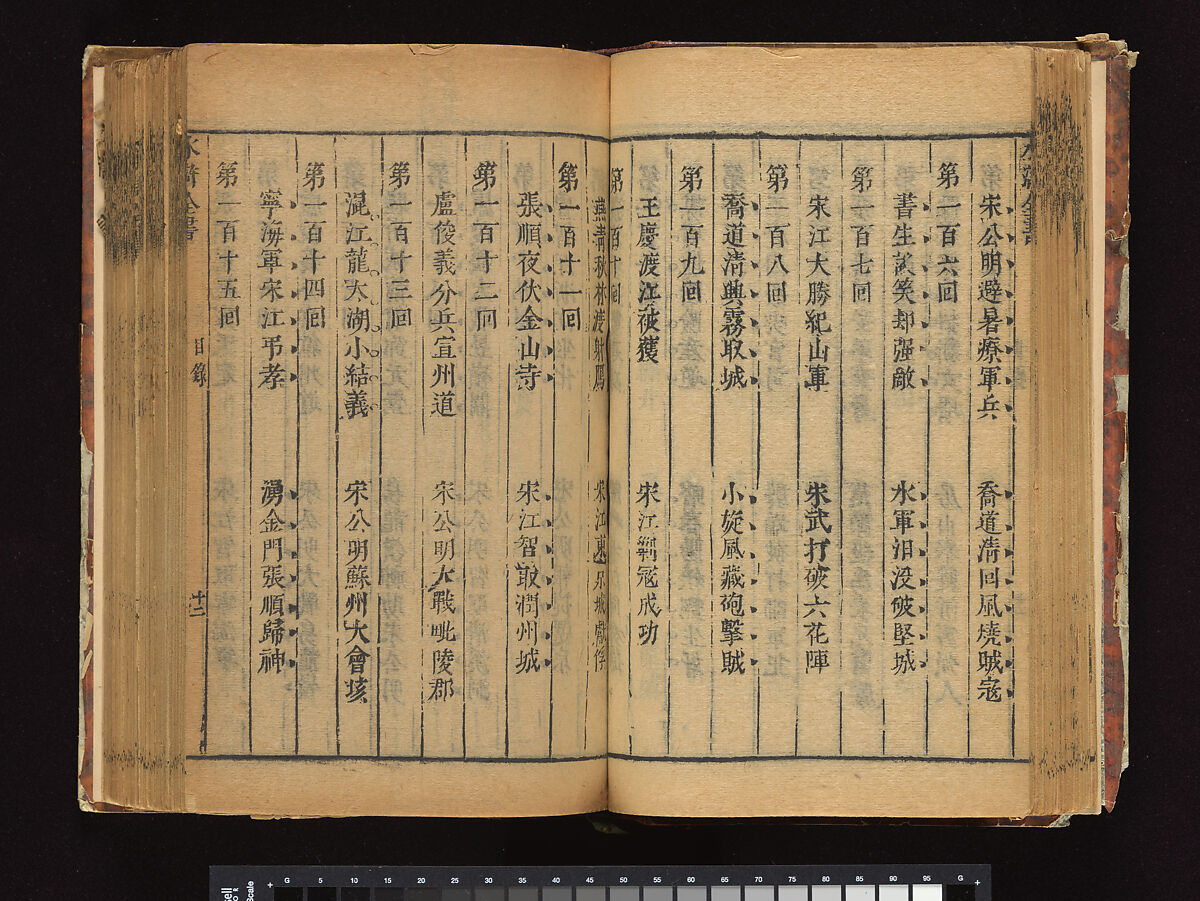 水滸全書
宋公明避暑療軍兵　喬道清回風燒賊寇
第一百六回
書生談笑却强敵　水軍汨没破堅城
第一百七回
宋江大勝紀山軍　朱武打破六花陣
第一百八回
喬道清興霧取城　小旋風藏砲擊賊
第一百九回
王慶渡江被獲　宋江剿寇成功
第一百十回
燕青秋林渡射鴈　宋江東京城獻俘
第一百十一回
張順夜伏金山寺　宋江智取潤州城
第一百十二回
盧俊義分兵宣州道　宋公明大戰毗陵郡
第一百十三回
混江龍太湖小結義　宋公明蘇州大會垓
第一百十四回
寧海軍宋江弔孝　湧金門張順歸神
第一百十五回
水滸全書　目錄　十二
G 5 10 15 20 25 30 35 40 45 50 55 60 65 70 75 80 85 90 95 G
Scale